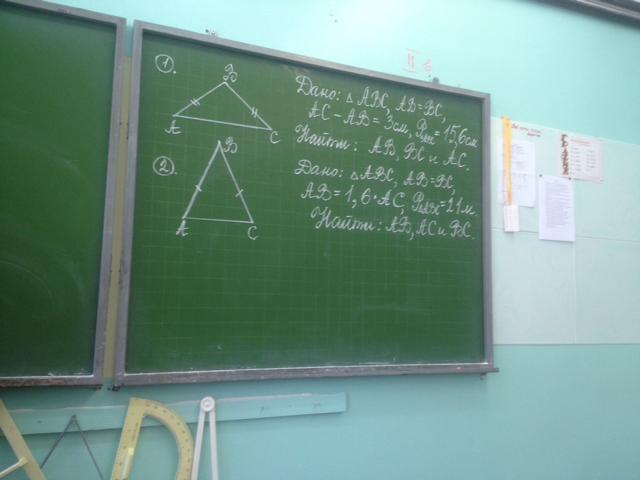 ①.
B
A
C
Дано: △ ABC, AB=BC,
AC-AB=3см, PABC=15,6см
Найти: AB, BC и AC.
②.
B
A
C
Дано: △ABC, AB=BC,
AB=1,6·AC, PABC=21м.
Найти: AB, AC и BC.